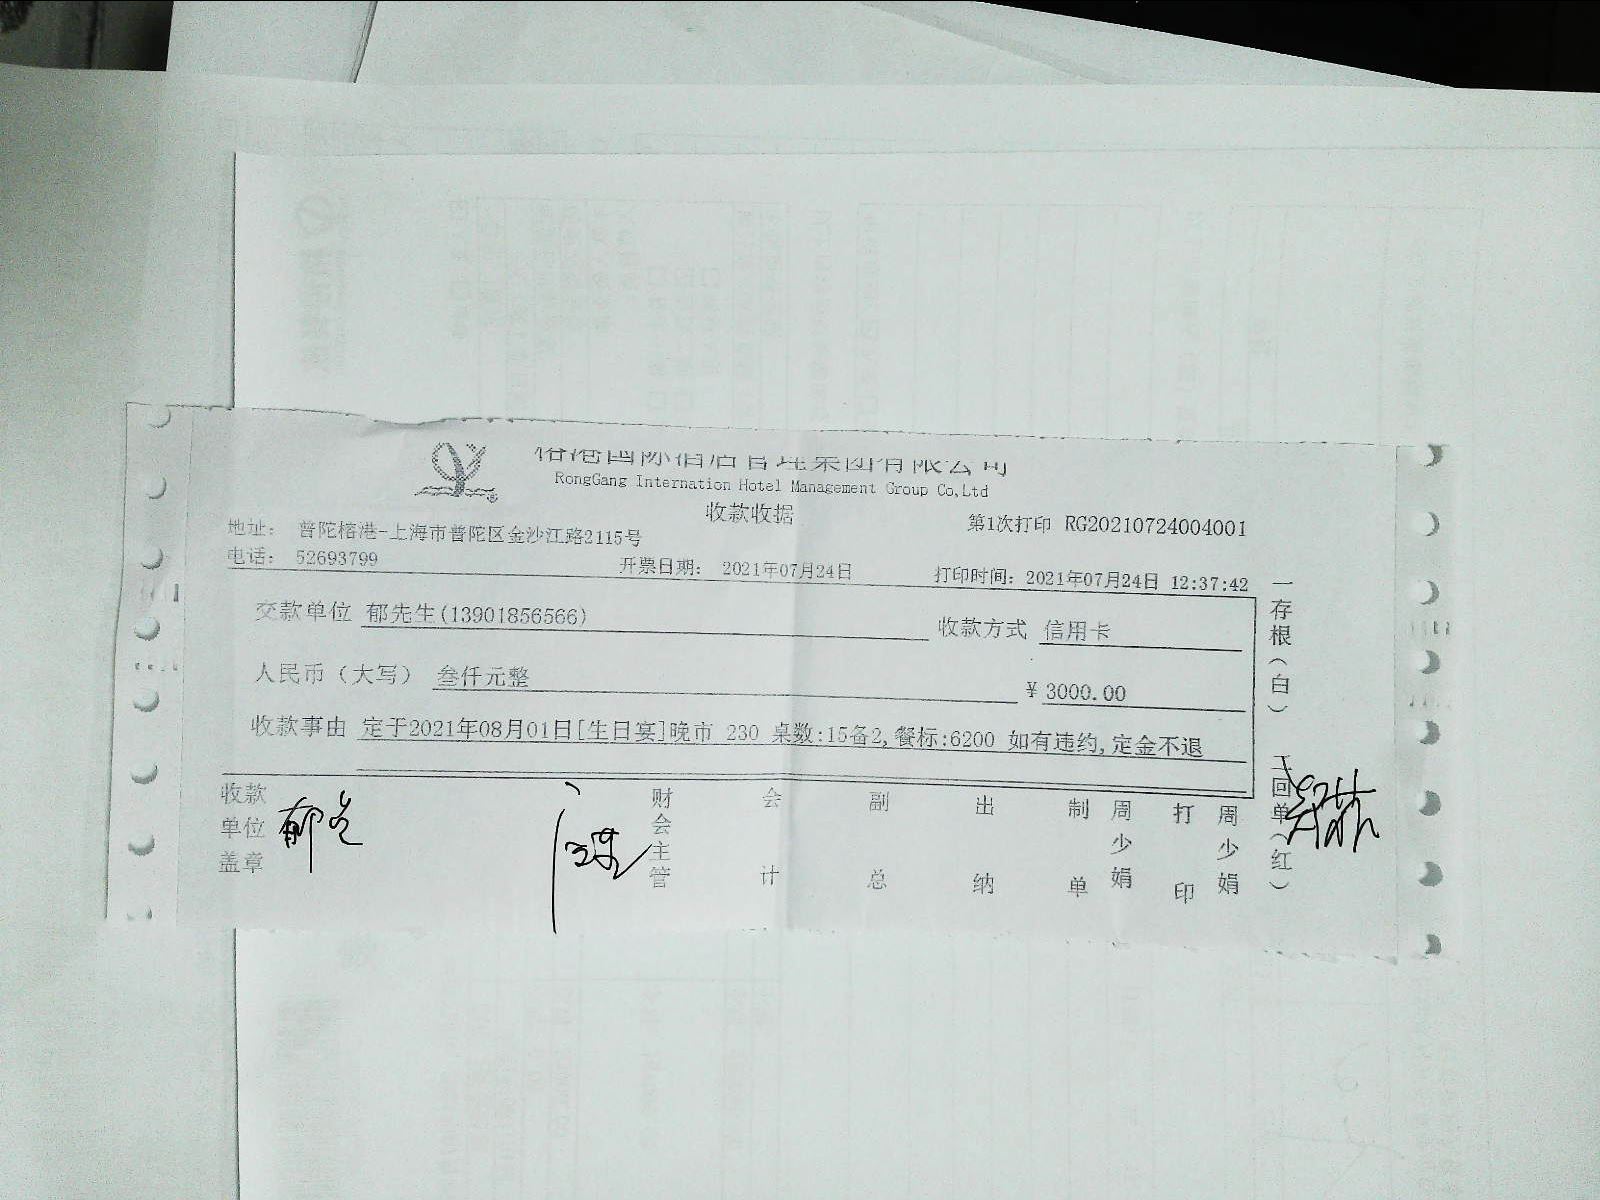 榕港国际酒店管理集团有限公司
RongGang Internation Hotel Management Group Co,Ltd
收款收据
第1次打印 RG20210724004001
地址: 普陀榕港-上海市普陀区金沙江路2115号
电话: 52693799 开票日期: 2021年07月24日 打印时间: 2021年07月24日 12:37:42
交款单位 郁先生(13901856566) 收款方式 信用卡
人民币(大写) 叁仟元整 ¥ 3000.00
收款事由 定于2021年08月01日[生日宴]晚市 230 桌数:15备2,餐标:6200 如有违约,定金不退
收款单位盖章
财会主管
会计
副总
出纳
制单 周少娟
打印 周少娟
一存根(白) 二回单(红)